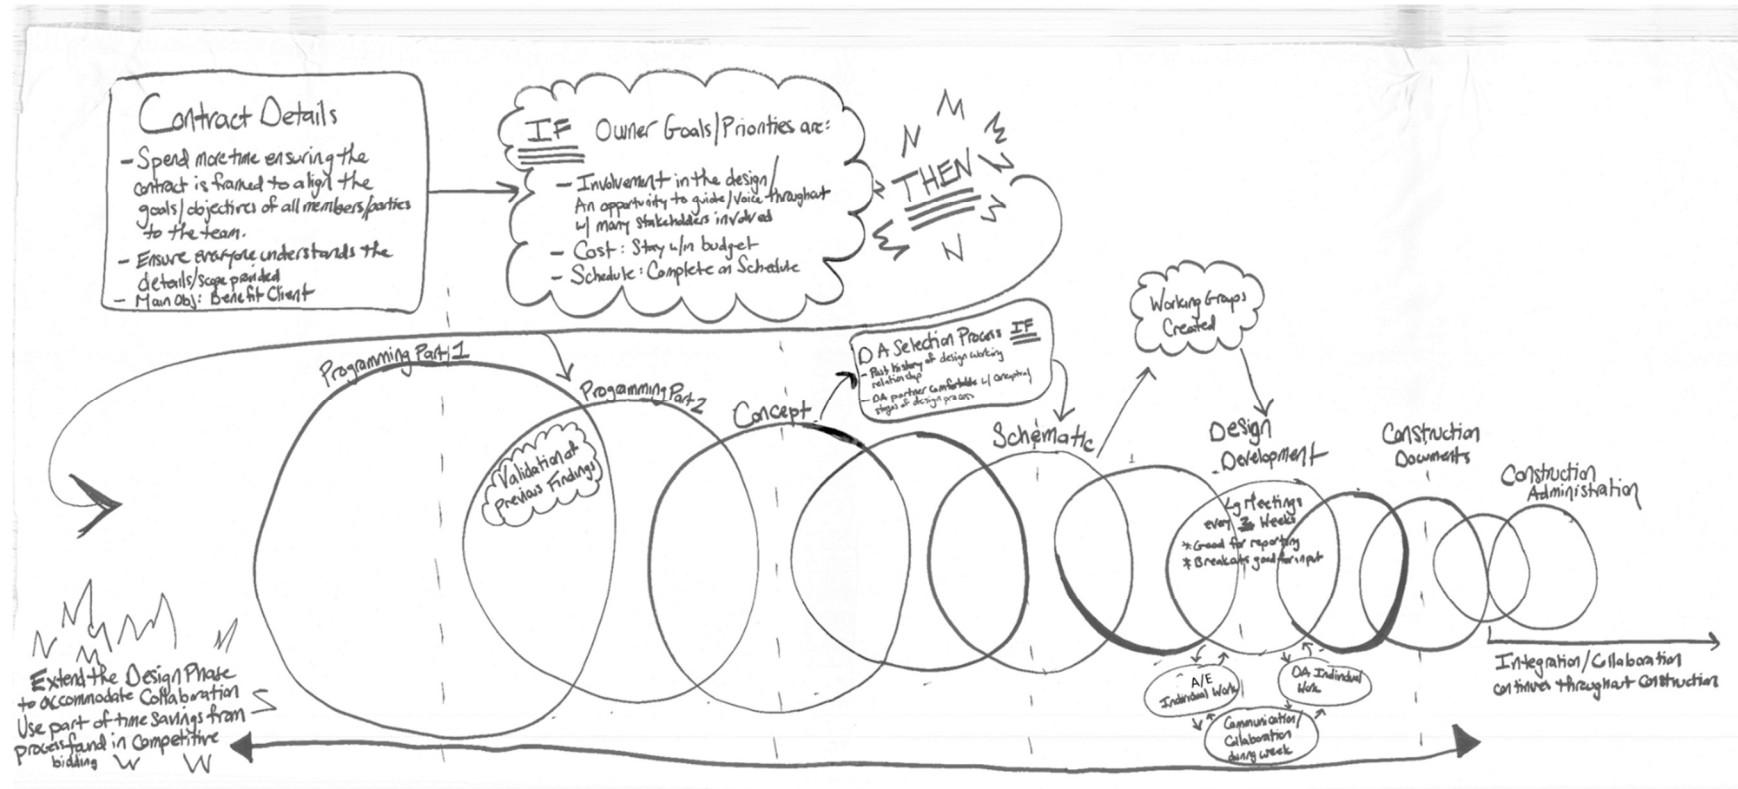 Contract Details
- Spend more time ensuring the
contract is framed to align the
goals/objectives of all members/parties
to the team.
- Ensure everyone understands the
details/scope provided
- Main Obj: Benefit Client
IF Owner Goals/Priorities are:
- Involvement in the design/
An opportunity to guide/voice throughout
w/ many stakeholders involved
- Cost: Stay w/in budget
- Schedule: Complete on Schedule
THEN
Working Groups
Created
DA Selection Process IF
- Past history of design working
relationship
- DA partner comfortable w/ conceptual
stages of design process
Programming Part 1
Programming Part 2
Validation of
Previous Findings
Concept
Schematic
Design
Development
Lg Meetings
every Weeks
* Good for reporting
* Breakouts good for input
Construction
Documents
Construction
Administration
A/E
Individual Work
DA Individual
Work
Communication/
Collaboration
during week
Integration/Collaboration
continues throughout construction
Extend the Design Phase
to accommodate Collaboration
Use part of time savings from
process found in Competitive
bidding